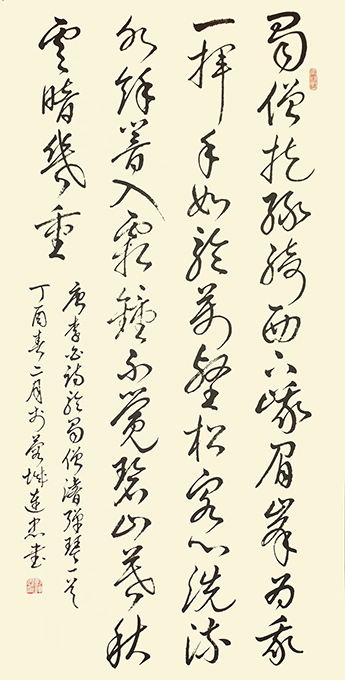 蜀僧抱綠綺西下峨眉峰為我
一揮手如聽萬壑松客心洗流
水餘響入霜鐘不覺碧山暮秋
雲暗幾重
唐李白詩聽蜀僧濬彈琴一首
丁酉春二月於蓉城連忠書